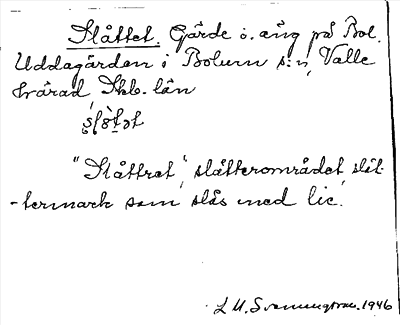 Slåttet. Gärde o. äng på Bol.
Uddagården i Bolum s:n, Valle
härad, Skb. län

"Slåttret", slåtterområdet, slåt-
-termark som slås med lie.
L M. Svenungsson. 1946